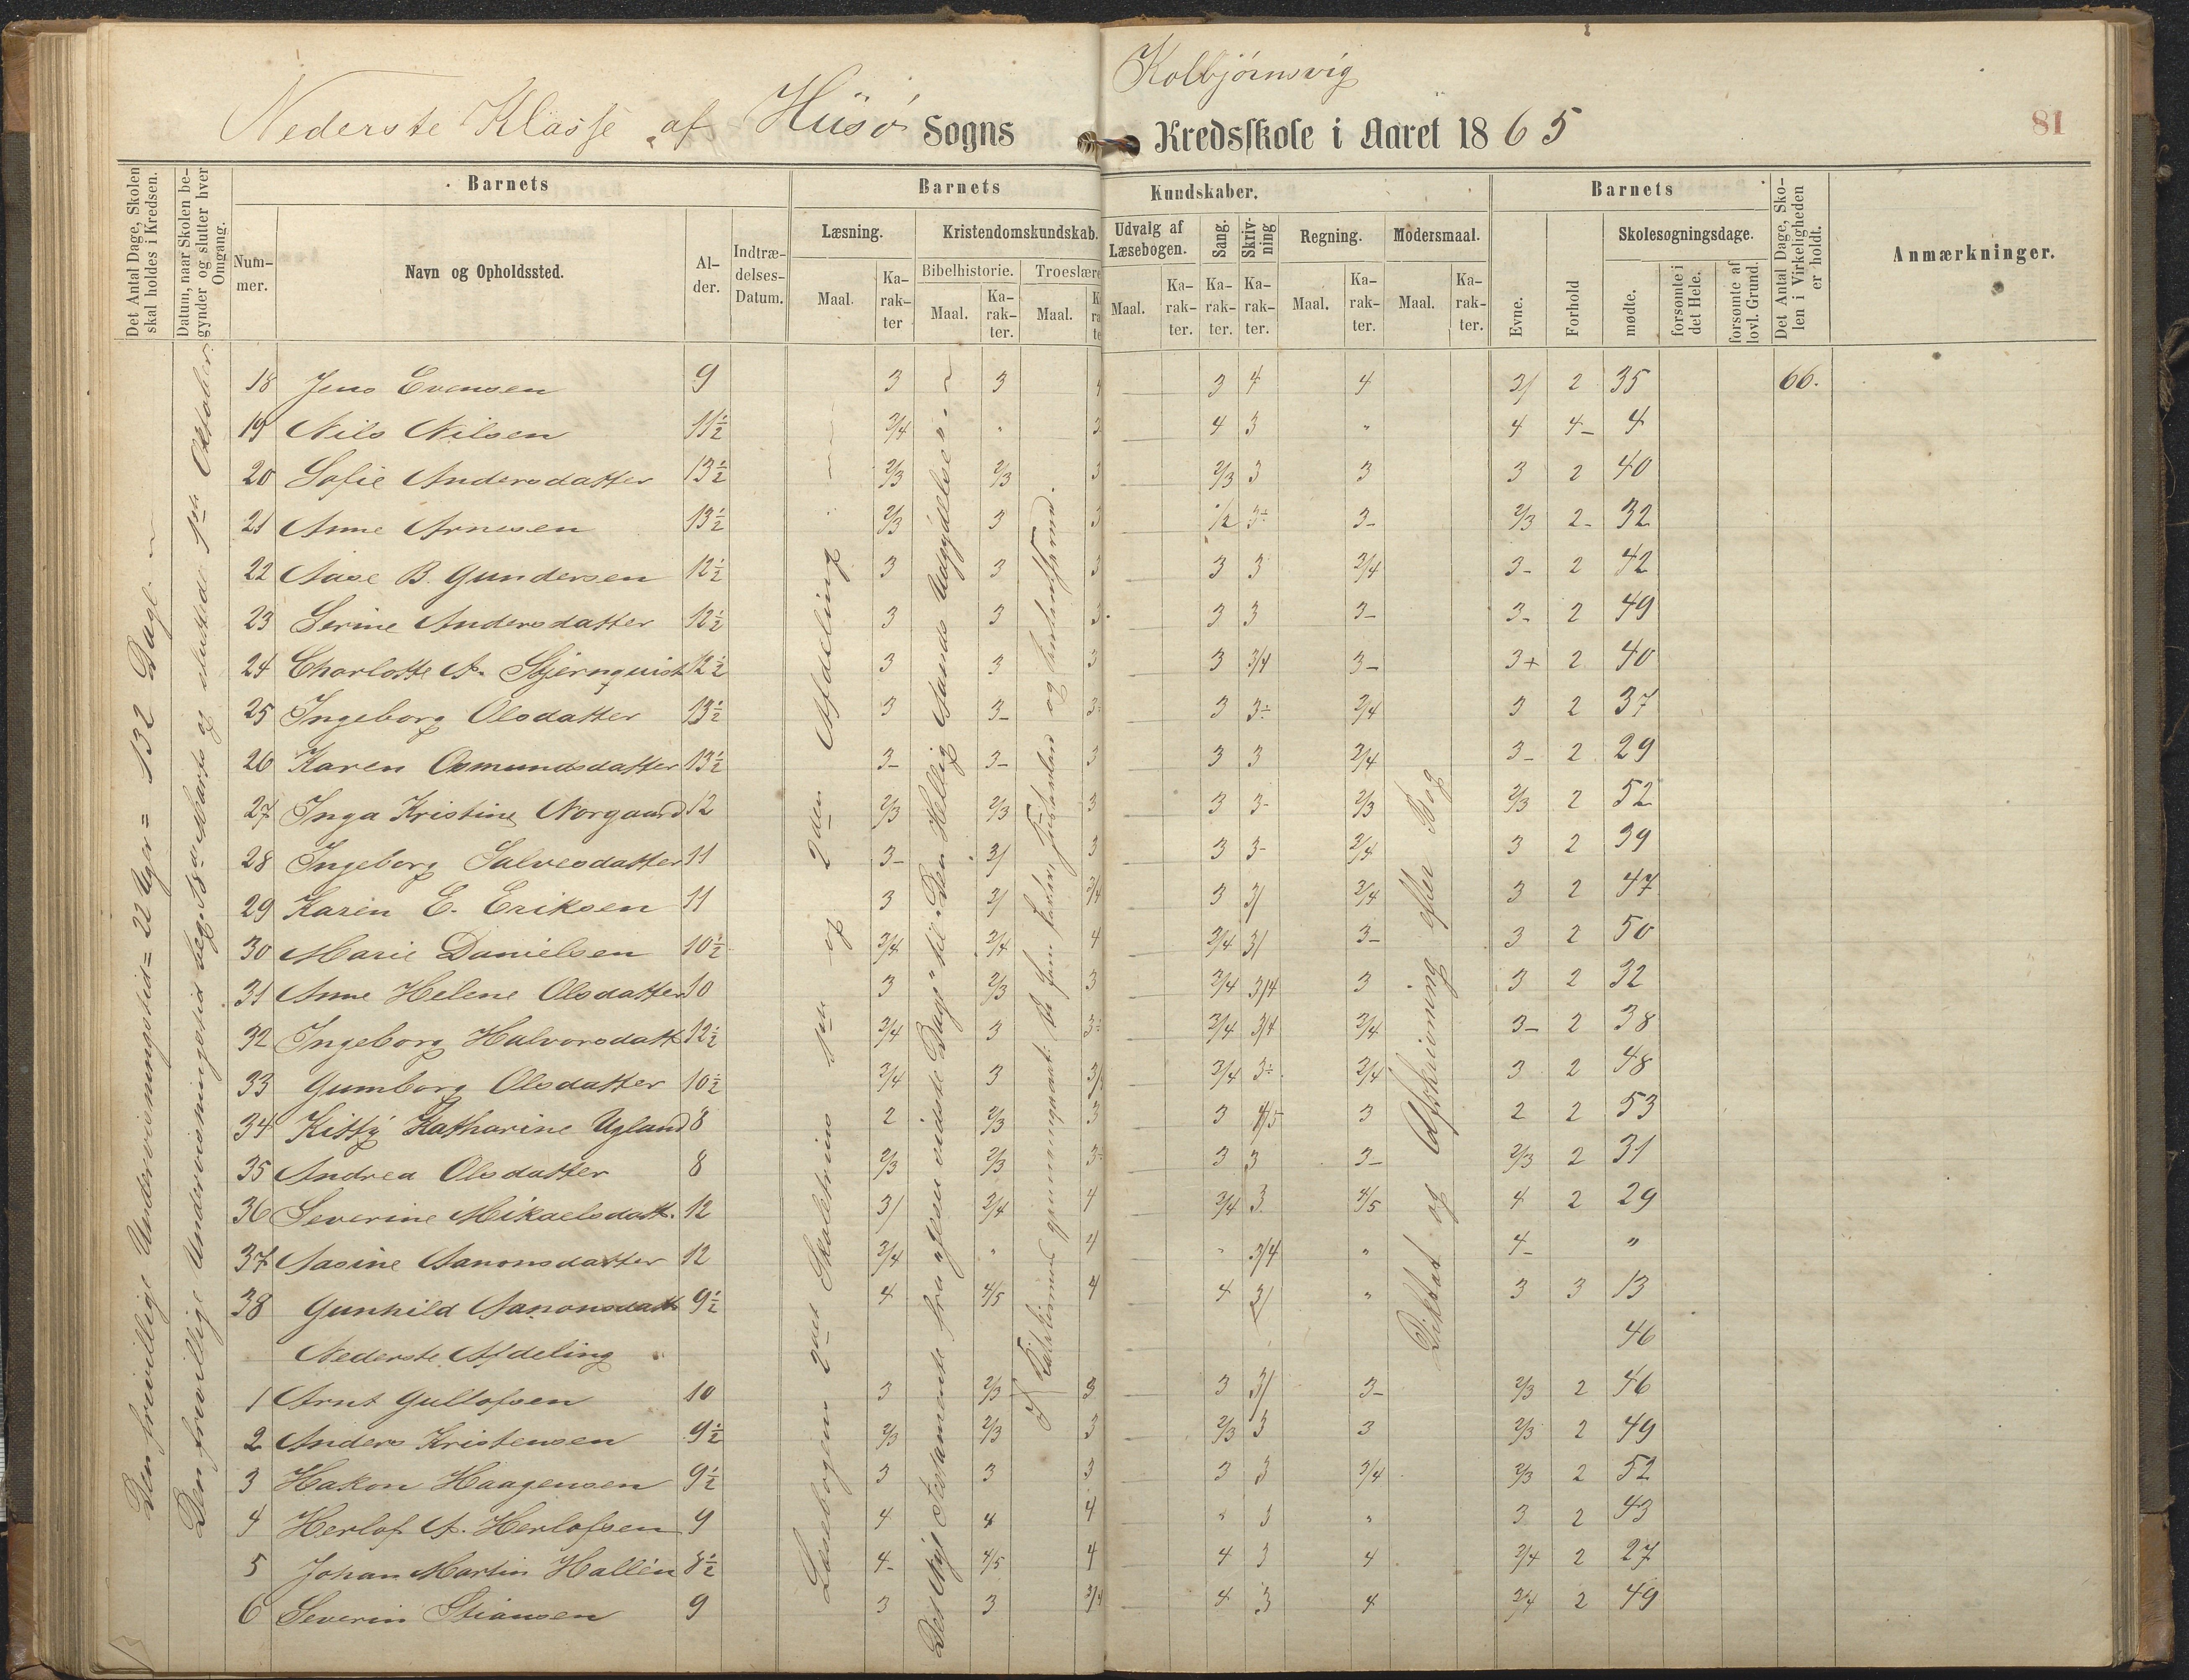 Kolbjörnsvig
Nederste Klasse af Hisö Sogns Kredsskole i Aaret 1865
81
Det Antal Dage, Skolen skal holdes i Kredsen.
Datum, naar Skolen begynder og slutter hver Omgang.
Barnets
Nummer.
Navn og Opholdssted.
Alder.
Indtrædelses-Datum.
Barnets Kundskaber.
Læsning.
Maal.
Karakter
Kristendomskundskab.
Bibelhistorie.
Maal.
Karakter.
Troeslære
Maal.
Udvalg af Læsebogen.
Maal.
Karakter.
Sang.
Karakter.
Skrivning
Karakter.
Regning.
Maal.
Karakter.
Modersmaal.
Maal.
Karakter.
Barnets
Evne.
Forhold
Skolesøgningsdage.
mødte.
forsømte i det Hele.
forsømte af lovl. Grund.
Det Antal Dage, Skolen i Virkeligheden er holdt.
Anmærkninger.
Den frivillige Undervisningstid = 22 Uger = 132 Dage
Den frivillige Undervisningstid beg. 18de Marts og sluttede 1ste Oktober.
Læsebogens 2det Skoletrin 1ste og 2den Afdeling
Det Nye Testamente fra "Jesu sidste Dage" til "Den Hellig Aands Udgydelse"
Diktat og Afskrivning efter Bog
18 Jens Evensen 9 3 3 3 4 4 3/ 2 35 66.
19 Nils Nilsen 11½ 3/4 " 4 3 " 4 4- 4
20 Sofie Andersdatter 13½ 2/3 2/3 3 2/3 3 3 3 2 40
21 Anne Arnesen 13½ 2/3 3 3 1/2 3÷ 3- 2/3 2- 32
22 Aase B. Gundersen 12½ 3 3 3 3 3 3/4 3- 2 42
23 Serine Andersdatter 12½ 3 3 3 3 3 3- 3- 2 49
24 Charlotte A. Stjernquist 12½ 3 3 3 3 3/4 3- 3+ 2 40
25 Ingeborg Olsdatter 13½ 3 3- 3÷ 3 3÷ 3/4 3 2 37
26 Karen Osmundsdatter 13½ 3- 3- 3 3 3 3/4 3- 2 29
27 Inga Kristine Norgaard 12 2/3 2/3 3 3 3- 2/3 2/3 2 52
28 Ingeborg Salvesdatter 11 3- 3/ 3 3 3- 3/4 3 2 39
29 Karen E. Eriksen 11 3 3/ 3/4 3 3/ 3/4 3 2 47
30 Marie Danielsen 10½ 3/4 3/4 4 3/4 3/ 3- 3 2 50
31 Anne Helene Olsdatter 10 3 2/3 3 3/4 3/4 3 3 2 32
32 Ingeborg Halvorsdatt 12½ 3/4 3 3÷ 3/4 3/4 3/4 3- 2 38
33 Gumborg Olsdatter 10½ 3/4 3 3/ 3/4 3÷ 3/4 3 2 48
34 Kitty Katharine Ugland 8 2 2/3 3 3 4/5 3 2 2 53
35 Andrea Olsdatter 8 2/3 2/3 3÷ 3 3 3- 2/3 2 31
36 Severine Mikaelsdatt. 12 3/ 3/4 4 3/4 3 4/5 4 2 29
37 Aasine Aanonsdatter 12 3/4 " 4 " 3/4 " 4- "
38 Gunhild Aanonsdatt 9½ 4 4/5 4 4 3/ " 3 3 13
46
Nederste Afdeling
1 Arnt Gullofsen 10 3 2/3 3 3 3/ 3- 2/3 2 46
2 Anders Kristensen 9½ 2/3 2/3 3 2/3 3 3 2/3 2 49
3 Hakon Haagensen 9½ 3 3 3 3 3 3/4 2/3 2 52
4 Herlof A. Herlofsen 9 4 4 4 " 3 " 3 2 43
5 Johan Martin Hallén 8½ 4- 4/5 4 4 3 4 3/4 2 27
6 Severin Stiansen 9 3 3 3/4 4 3 4 3/4 2 49